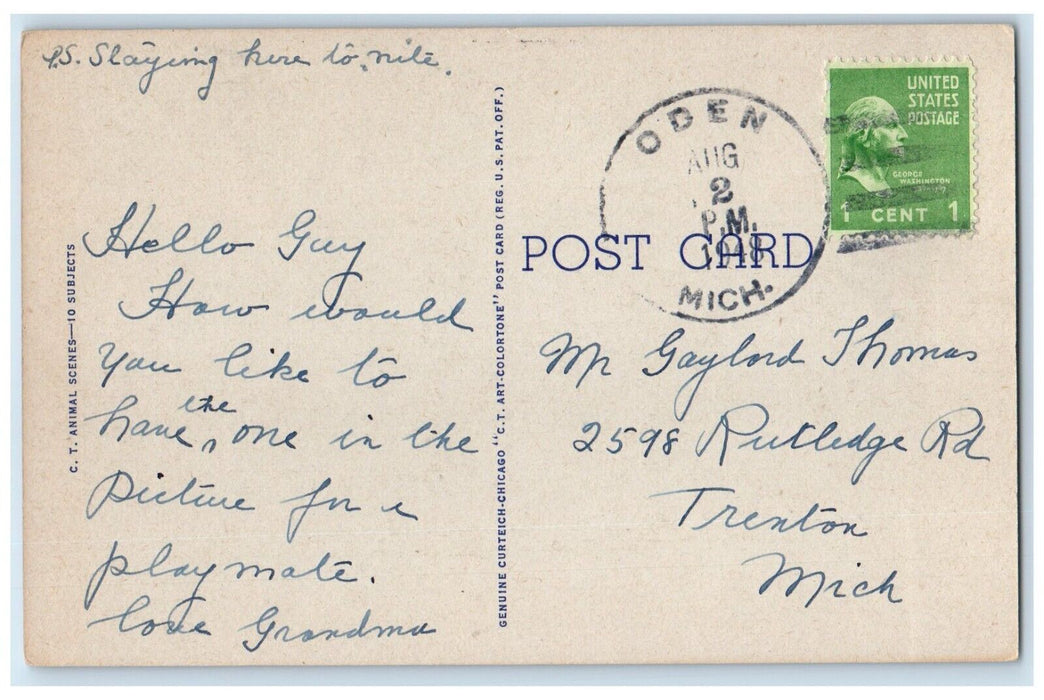 P.S. Staying here to-nite.
Hello Guy
How would
you like to
have the one in the
picture for a
playmate.
love Grandma
C. T. ANIMAL SCENES—10 SUBJECTS
GENUINE CURTEICH-CHICAGO "C. T. ART-COLORTONE" POST CARD (REG. U. S. PAT. OFF.)
POST CARD
ODEN
AUG
2
P.M.
1948
MICH.
UNITED
STATES
POSTAGE
GEORGE
WASHINGTON
1 CENT 1
Mr Gaylord Thomas
2598 Rutledge Rd
Trenton
Mich